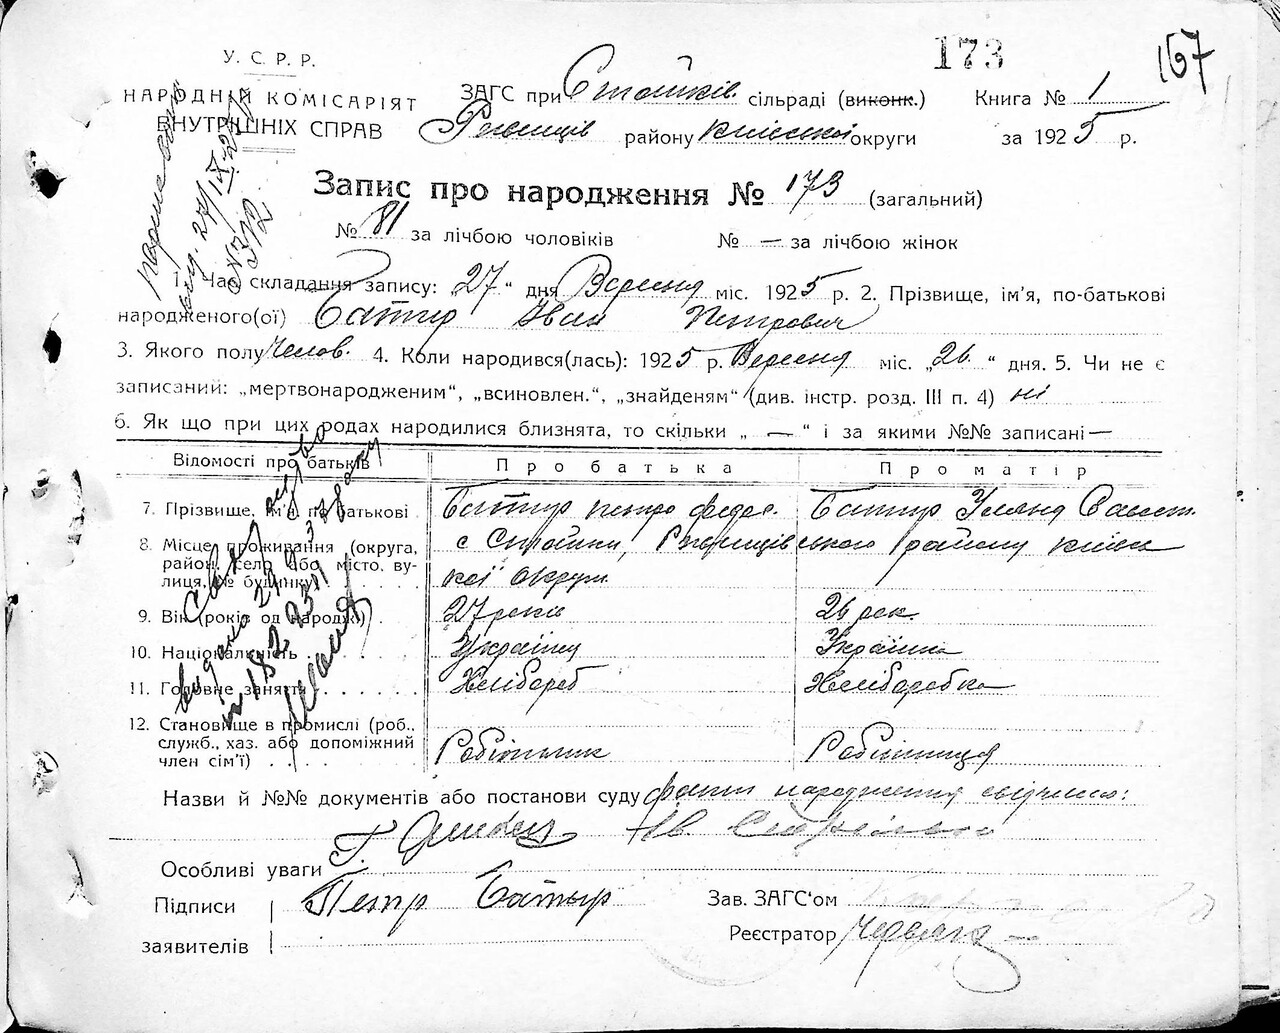 173
167
У. С. Р. Р.
НАРОДНІЙ КОМІСАРІЯТ
ВНУТРІШНІХ СПРАВ
ЗАГС при Стайків. сільраді (виконк.) Книга № 1
Ржищів району Київської округи за 1925 р.
Запис про народження № 173 (загальний)
№ 81 за лічбою чоловіків № — за лічбою жінок
1. Час складання запису: „27“ дня Вересня міс. 1925 р. 2. Прізвище, ім’я, по-батькові
народженого(ої) Батир Іван Петрович
3. Якого полу Челов. 4. Коли народився(лась): 1925 р. Вересня міс. „26“ дня. 5. Чи не є
записаний: „мертвонародженим“, „всиновлен.“, „знайденям“ (див. інстр. розд. III п. 4) ні
6. Як що при цих родах народилися близнята, то скільки „ — “ і за якими №№ записані —
Відомості про батьків Про батька Про матір
7. Прізвище, ім’я по батькові Батир Петро Федор. Батир Уляна
8. Місце проживання (округа, с Стайки, Ржищівського району Київсь
район, село або місто, ву-
лиця, № будинку) кої округи
9. Вік (років од народж.) 27 років 26 рок.
10. Національність Українц Українка
11. Головне заняття Хлібороб Хлiборобка
12. Становище в промислі (роб.,
служб., хаз. або допоміжний
член сім’ї) Робітник Робітниця
Назви й №№ документів або постанови суду факт народження свідчили:
Особливі уваги
Підписи Петр Батыр Зав. ЗАГС‘ом
заявителів Реєстратор